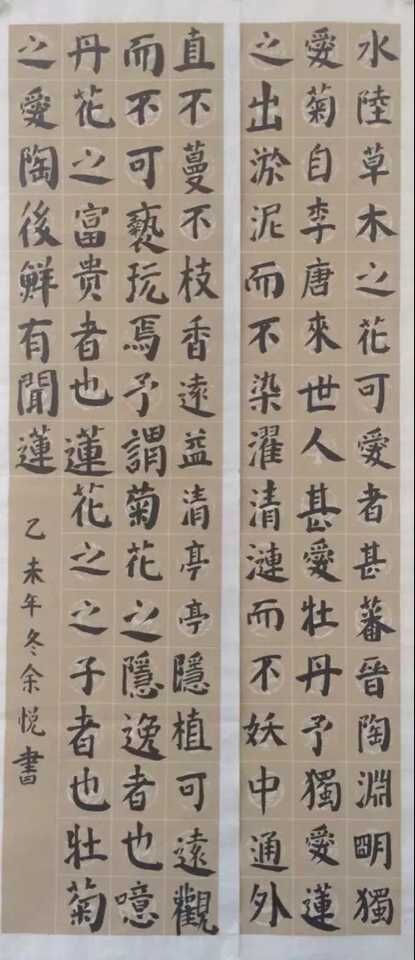 水陸草木之花可愛者甚蕃晉陶淵明獨
愛菊自李唐來世人甚愛牡丹予獨愛蓮
之出淤泥而不染濯清漣而不妖中通外
直不蔓不枝香遠益清亭亭隱植可遠觀
而不可褻玩焉予謂菊花之隱逸者也噫
丹花之富贵者也蓮花之之子者也牡菊
之愛陶後鮮有聞蓮
乙未年冬余悦書